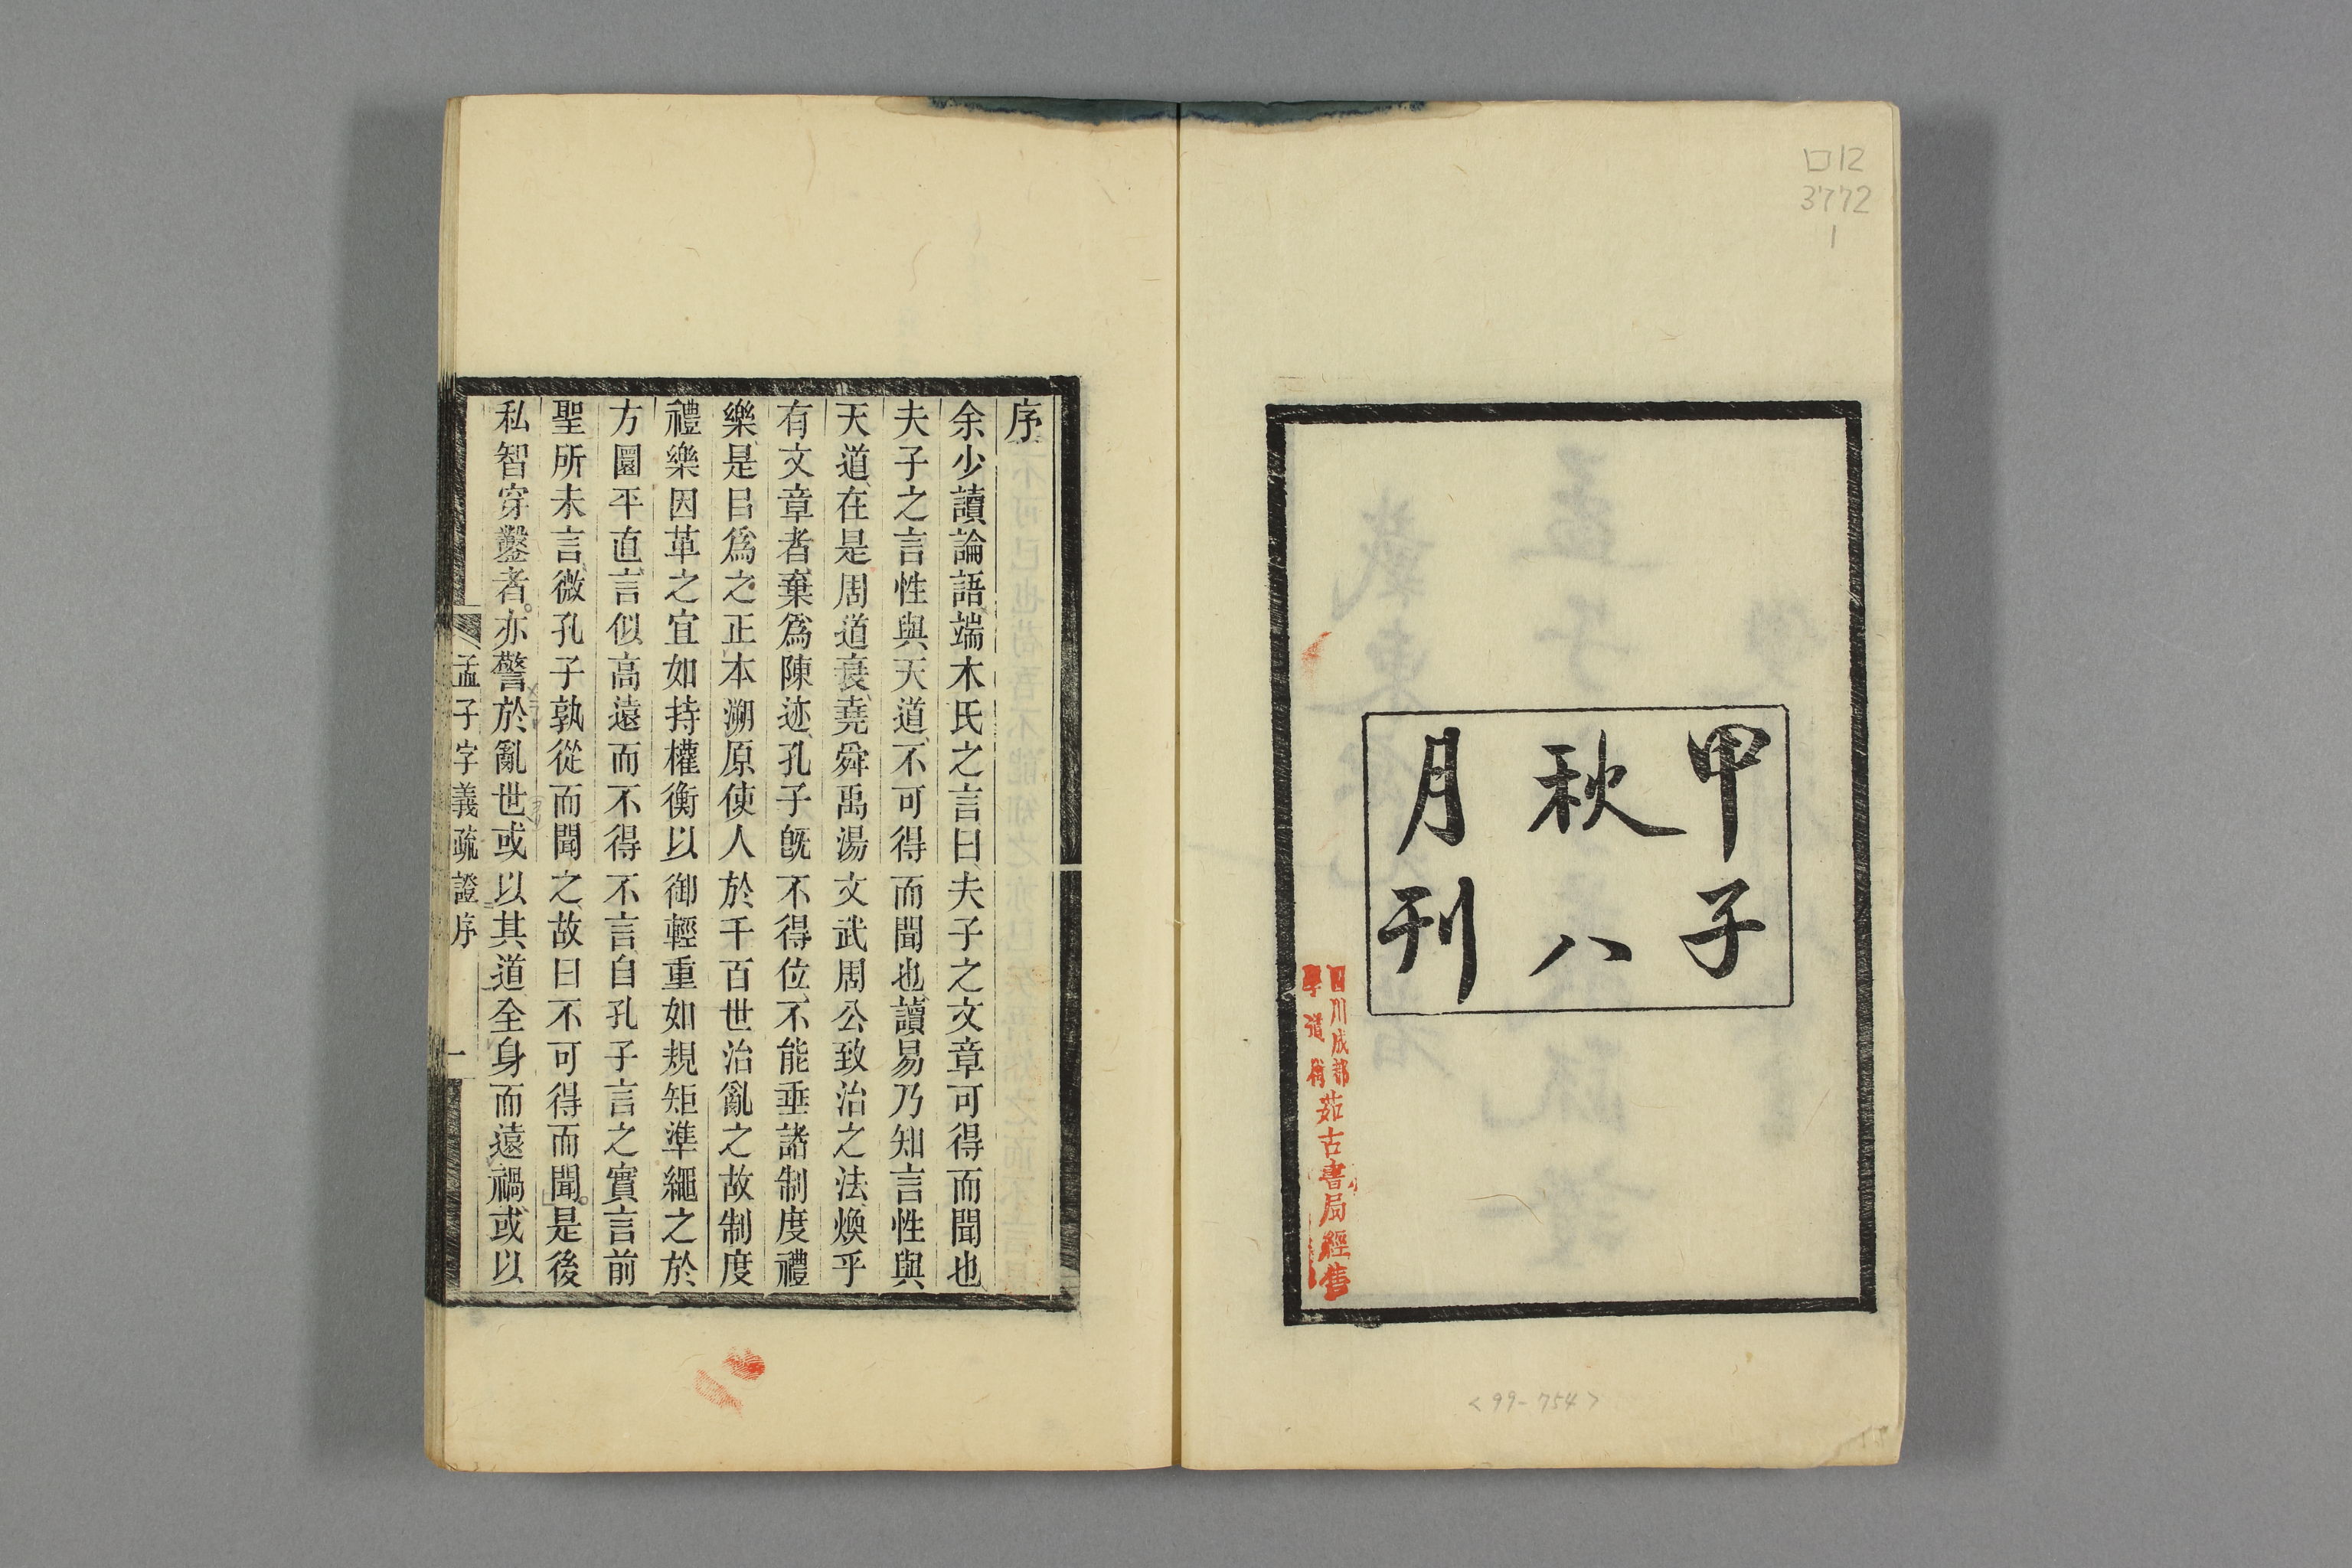 口12
3772
1
甲子
秋八
月刊
四川成都
學道街
茹古書局經售
<99-754>
序
余少讀論語端木氏之言曰夫子之文章可得而聞也
夫子之言性與天道不可得而聞也讀易乃知言性與
天道在是周道衰堯舜禹湯文武周公致治之法煥乎
有文章者棄爲陳迹孔子旣不得位不能垂諸制度禮
樂是㠯爲之正本溯原使人於千百世治亂之故制度
禮樂因革之宜如持權衡以御輕重如規矩準繩之於
方圜平直言似高遠而不得不言自孔子言之實言前
聖所未言微孔子孰從而聞之故曰不可得而聞。是後
私智穿鑿者。亦警於亂世或以其道全身而遠禍或以
孟子字義疏證序
一